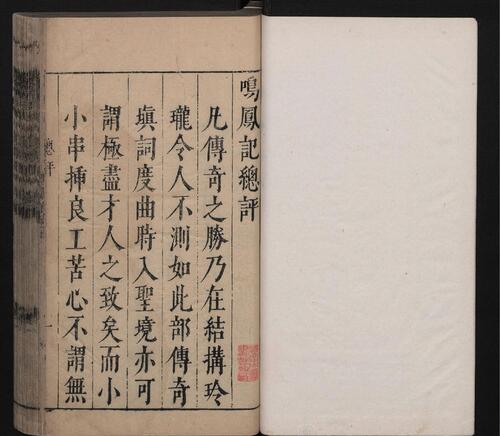 鳴鳳記總評
凡傳奇之勝乃在結搆玲
瓏令人不測如此部傳奇
塡詞度曲時入聖境亦可
謂極盡才人之致矣而小
小串揷良工苦心不謂無
總評
一